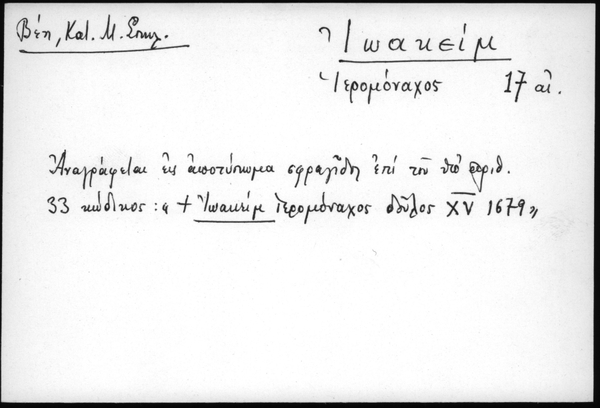 Βέη, Κατ. Μ. Σπηλ.
Ἰωακείμ
Ἱερομόναχος 17 αἰ.
Ἀναγράφεται εἰς ἀποτύπωμα σφραγῖδος ἐπὶ τοῦ ὑπ' ἀριθ.
33 κώδικος : « + Ἰωακεὶμ Ἱερομόναχος δοῦλος XV 1679 »